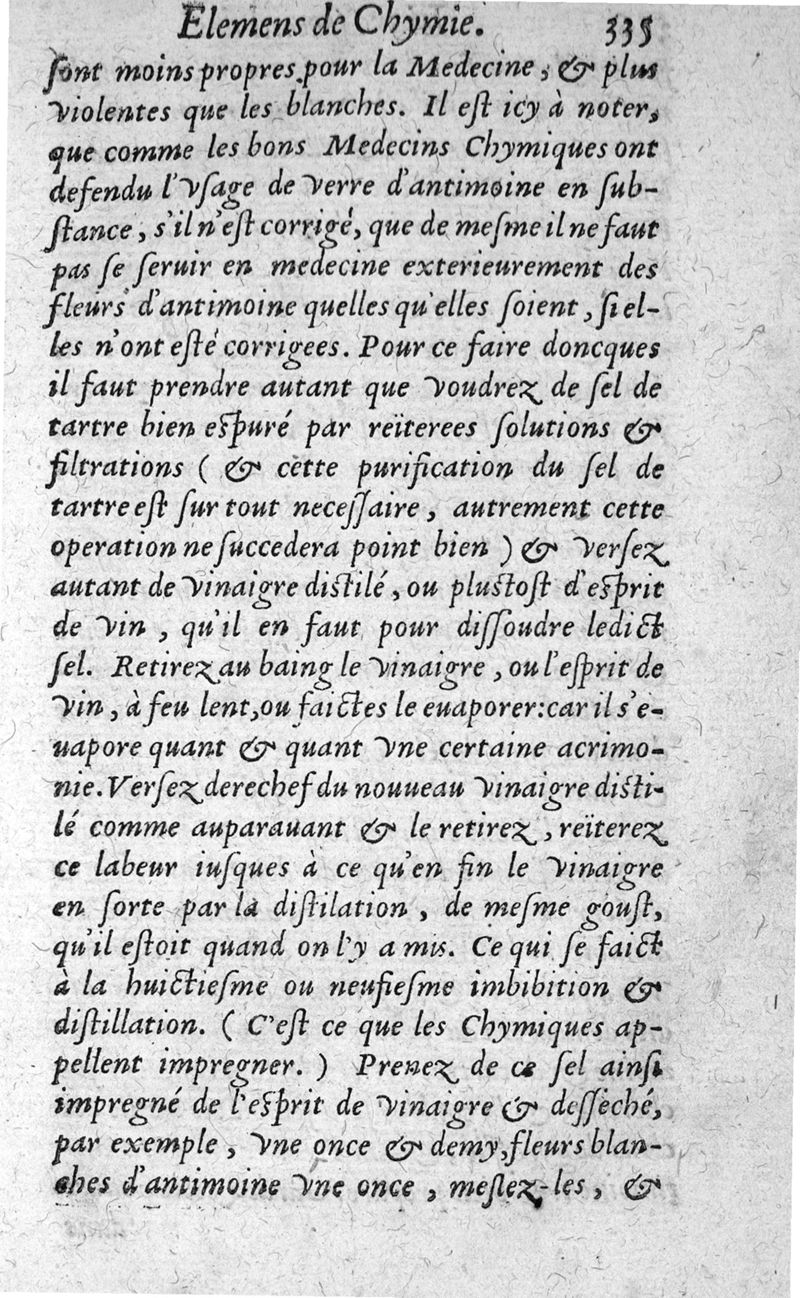 Elemens de Chymie. 335
ſont moins propres pour la Medecine, & plus
violentes que les blanches. Il eſt icy à noter,
que comme les bons Medecins Chymiques ont
defendu l'vſage de verre d'antimoine en ſub-
ſtance, s'il n'eſt corrigé, que de meſme il ne faut
pas ſe ſeruir en medecine exterieurement des
fleurs d'antimoine quelles qu'elles ſoient, ſi el-
les n'ont eſté corrigees. Pour ce faire doncques
il faut prendre autant que voudrez de ſel de
tartre bien eſpuré par reïterees ſolutions &
filtrations ( & cette purification du ſel de
tartre eſt ſur tout neceſſaire, autrement cette
operation ne ſuccedera point bien ) & verſez
autant de vinaigre diſtilé, ou pluſtoſt d'eſprit
de vin, qu'il en faut pour diſſoudre ledict
ſel. Retirez au baing le vinaigre, ou l'eſprit de
vin, à feu lent, ou faictes le euaporer: car il s'e-
uapore quant & quant vne certaine acrimo-
nie. Verſez derechef du nouueau vinaigre diſti-
lé comme auparauant & le retirez, reïterez
ce labeur iuſques à ce qu'en fin le vinaigre
en ſorte par la diſtilation, de meſme gouſt,
qu'il eſtoit quand on l'y a mis. Ce qui ſe faict
à la huictieſme ou neufieſme imbibition &
diſtillation. ( C'eſt ce que les Chymiques ap-
pellent impregner. ) Prenez de ce ſel ainſi
impregné de l'eſprit de vinaigre & deſſeché,
par exemple, vne once & demy, fleurs blan-
ches d'antimoine vne once, meſlez-les, &